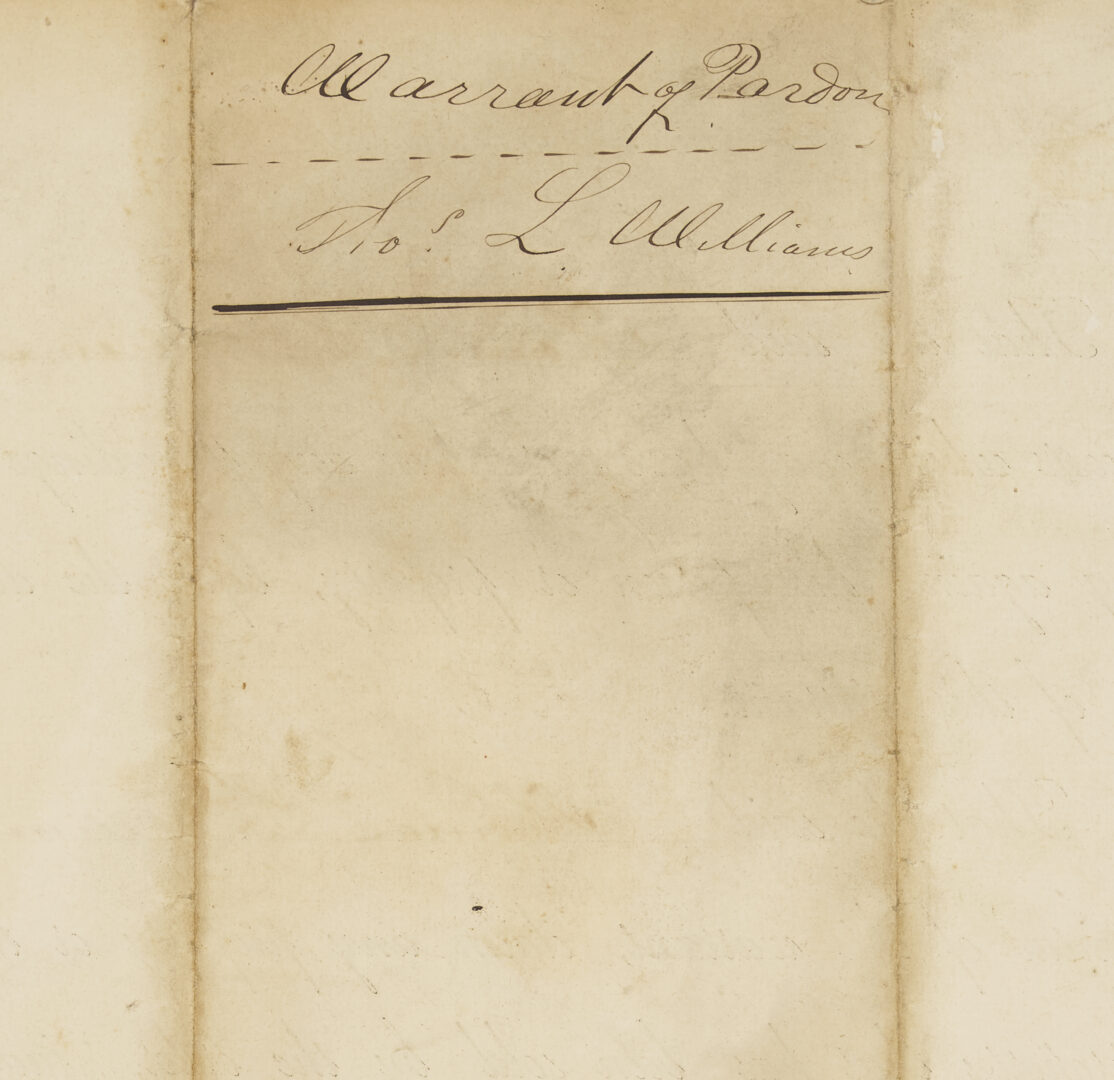 Warrant of Pardon
Thos. L Williams